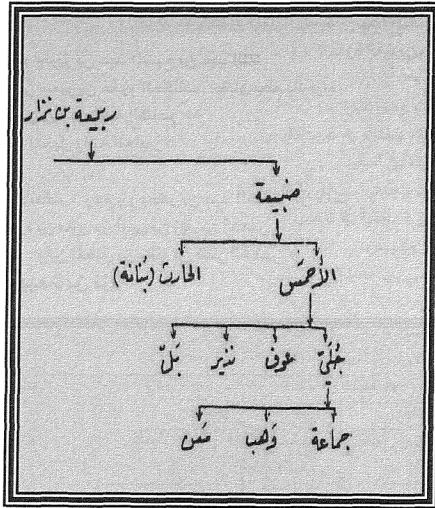 ربيعة بن نزار
ضبيعة
الأحمَس الحارث (بُنانة)
جُلَيّ عوف نذير بَلّ
جماعة وَهب مَعن